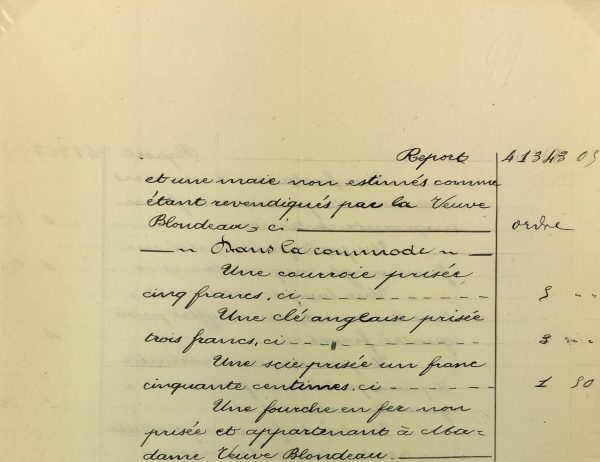 99
Report 41343 05
et une maie non estimés comme
étant revendiqués par la Veuve
Blondeau, ci ordre
— " Dans la commode " —
Une courroie prisée
cinq francs, ci 5 " "
Une clé anglaise prisée
trois francs, ci 3 " "
Une scie prisée un franc
cinquante centimes, ci 1 50
Une fourche en fer non
prisée et appartenant à Ma-
dame Veuve Blondeau